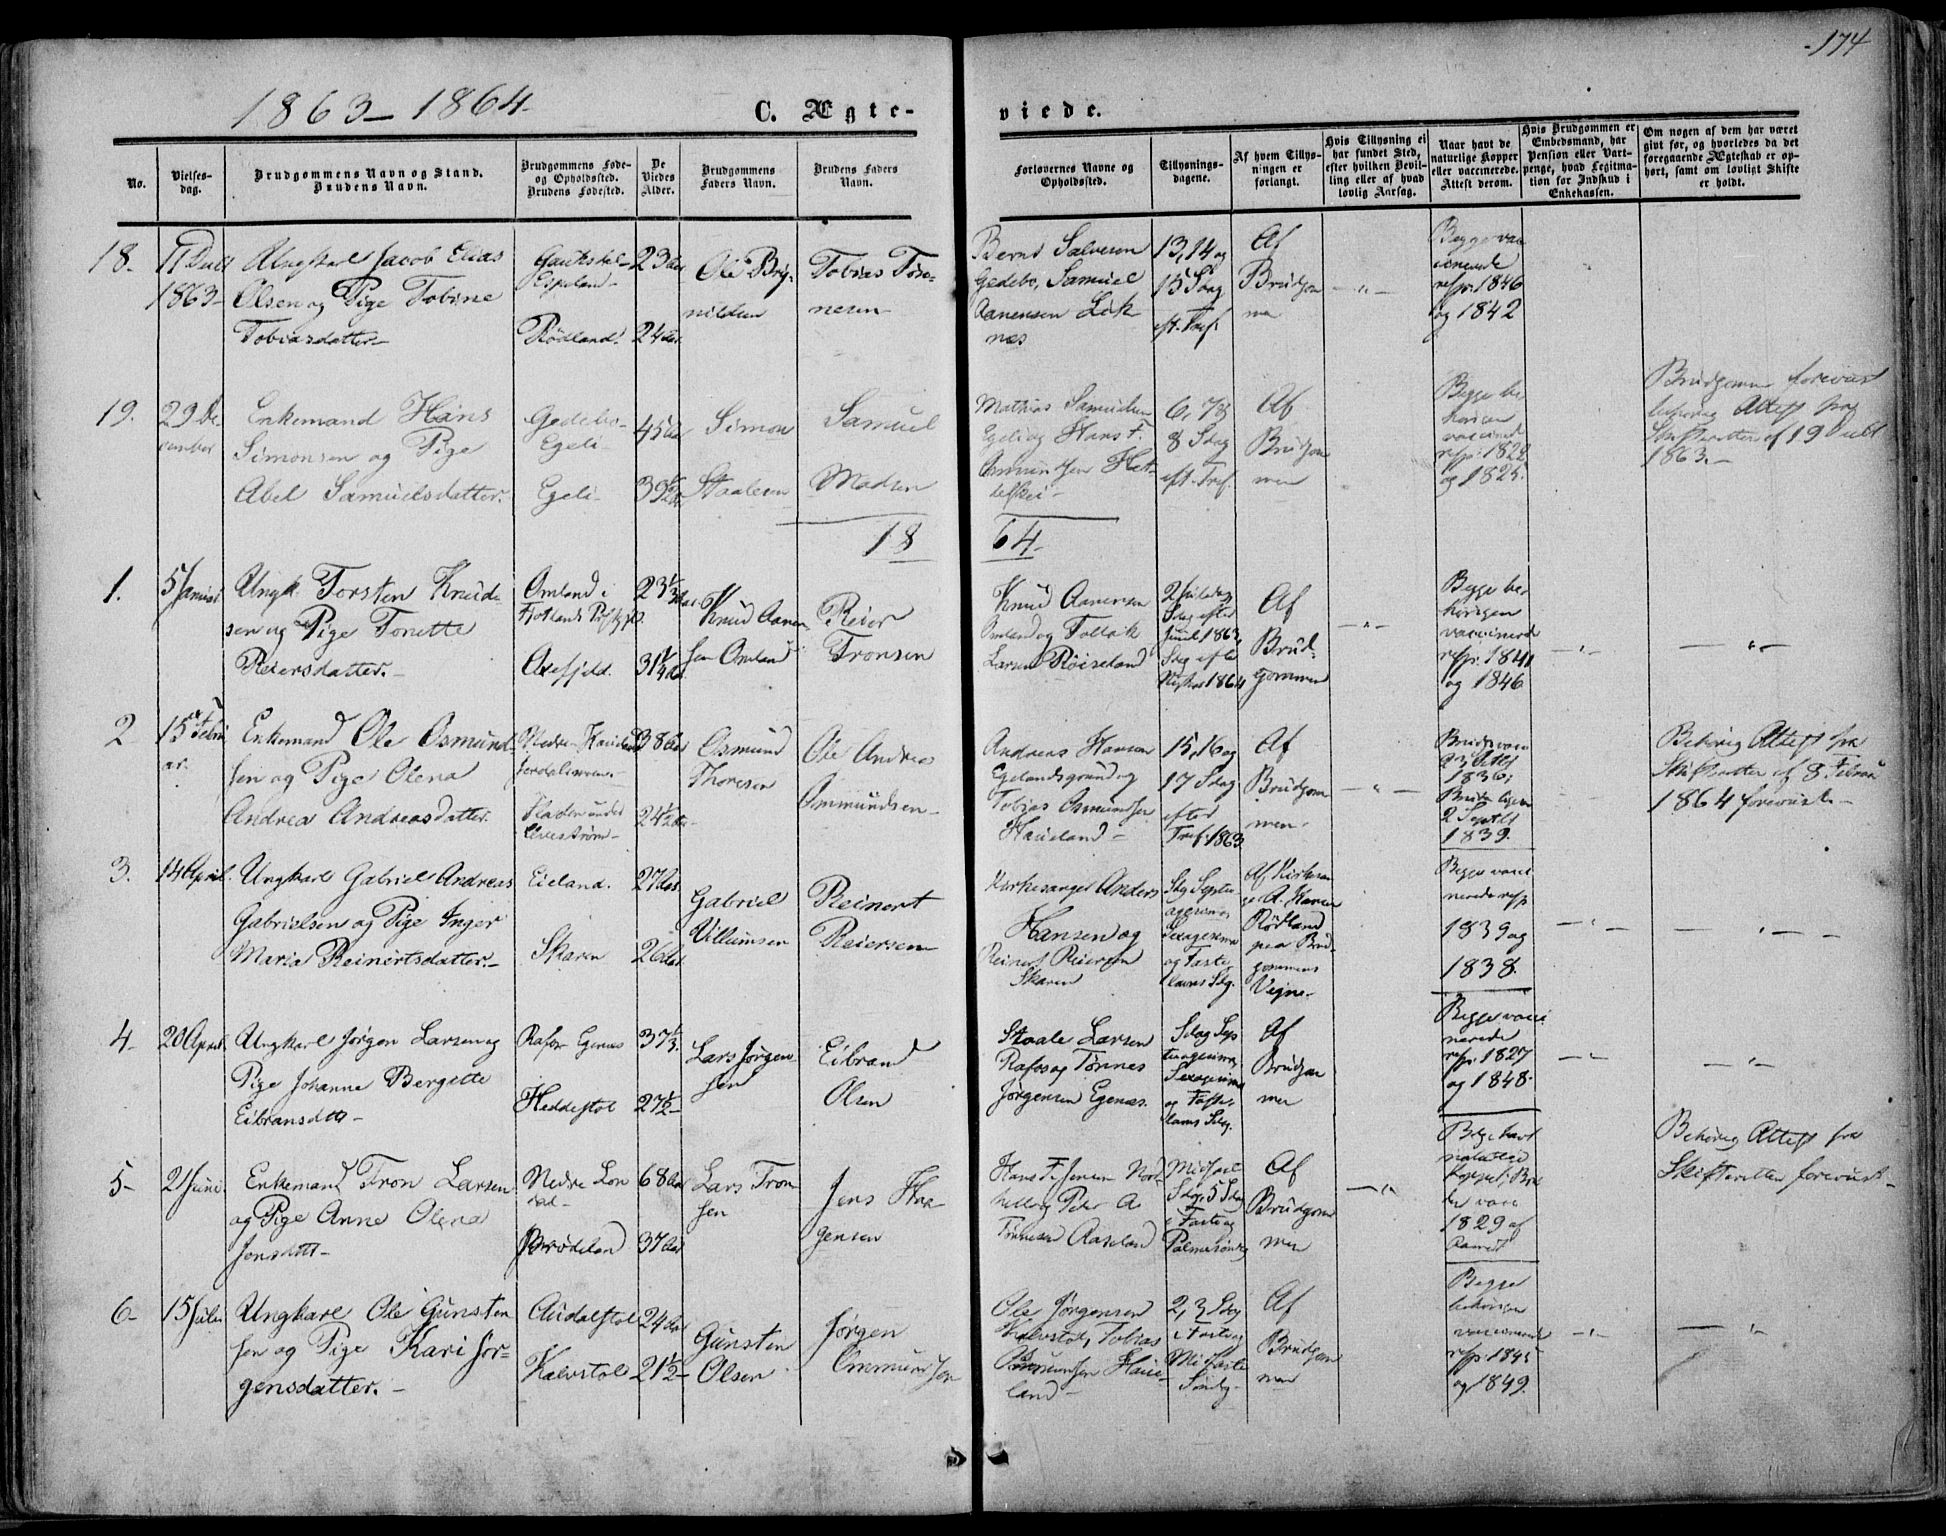 -174
1863-1864.
C. Ægte-
viede.
No.
Vielses-
dag.
Brudgommens Navn og Stand.
Brudens Navn.
Brudgommens Føde-
og Opholdssted.
Brudens Fødested.
De
Viedes
Alder.
Brudgommens
Faders Navn.
Brudens Faders
Navn.
Forlovernes Navne og
Opholdssted.
Tillysnings-
dagene.
Af hvem Tillys-
ningen er
forlangt.
Hvis Tillysning ei
har fundet Sted,
efter hvilken Bevil-
ling eller af hvad
lovlig Aarsag.
Naar havt de
naturlige Kopper
eller vaccinerede.
Attest derom.
Hvis Brudgommen er
Embedsmand, har
Pension eller Vart-
penge, hvad Legitima-
tion for Indskud i
Enkekassen.
Om nogen af dem har været
givt før, og hvorledes da det
foregaaende Ægteskab er op-
hørt, samt om lovligt Skifte
er holdt.
18.
1863-
Ungkarl Jacob Elias
Olsen og Pige Tobine
Tobiasdatter-
Espeland-
Rödland.
23 Aar
24 Aar
Ole Bry-
nildsen
Tobias Tøn-
nesen-
Bernt Salvesen
Gedebo, Samuel
Aanensen Lik
næs
13, 14 og
15 Sdag
eft. Tref.
Af
Brudgom
men
-"-
Begge vac
cinerede
resp. 1846
og 1842
19.
29 De
cember
Enkemand Hans
Simonsen og Pige
Abel Samuelsdatter.
Gedebo-
Egeli-
Egeli-
45 Aar
39½ Aar
Simon
Staalesen
Samuel
Madsen
Mathias Samuelsen
Egeli og Hans T.
6, 7 og
8 Sdag
eft. Tref.
Af
Brudgom
men
Begge be
hörigen
vaccineret
resp. 1822
og 1825.
Brudgommen forevist
behörig Attest fra
Skifteretten af 19
1863.-
18
64.
1.
5 Januar
Ungk. Torsten Knud-
sen og Pige Tonette
Reiersdatter.-
Omland i
Fjotlands
23⅓ Aar
31¼ Aar
Knud Aanen-
sen Omland
Reier
Tronsen
Knud Aanensen
Omland og Tollak
Larsen Röiseland
Sdag efter
Juul 1863,
Sdg efter
Nytaar 1864
Af
Brud-
gommen
-"-
Begge be
hörigen
vaccinerede
resp. 1841
og 1846
-"-
-"-
2
15 Febru
ar.
Enkemand Ole Osmund-
sen og Pige Olena
Andrea Andreasdatter.
38 Aar
24½ Aar
Osmund
Thoresen
Ole Andrea
Ommundsen-
Andreas Hansen
Egelandsgrund og
Tobias Osmundsen
Haueland-
15, 16 og
17 Sdag
efter
Tref. 1863
Af
Brudgom
men-
-"-
1836;
2 Septbr
1839.
Behörig Attest fra
Skifteretten af 8 Febru
1864 forevist.-
3.
14 April.
Ungkarl Gabriel Andreas
Gabrielsen og Pige Inger
Maria Reinertsdatter.-
Eieland.
Skaren
27 Aar
26 Aar
Gabriel
Villumsen
Reinert
Reiersen
Kirkesanger Anders
Hansen og
Reinert Reiersen
Skaren
Sdg Septu-
agesima,
Sexagesima
og Faste
lavns Sdg.
Af Kirkesan
ger A. Hansen
Rödland
paa Brud-
gommens
Vegne-
Begge vacci
nerede resp
1839 og
1838.
-"-
-"-
4.
20 April
Ungkarl Jörgen Larsen og
Pige Johanne Bergitte
Eibransdttr-
Rafos
Heddestöl
37⅓
27½-
Lars Jörgen
sen
Eibrand
Olsen
Staale Larsen
Rafos og Tönnes
Jörgensen Egenæs.
Sdag Sep
tuagesima,
Sexagesima
og Faste-
lavns Sdg.
Af
Brudgom
men
Begge vacci
nerede
resp. 1827
og 1848.
-"-
-"-
5-
2 Juni
Enkemand Tron Larsen
og Pige Anne Olena
Jensdttr-
Nedre Lon
dal-
Brödeland
68 Aar
37 Aar
Lars Tron
sen
Jens Haa
gensen
Hans F. Jensen
Peter A
Tönnesen Aaseland
Midfaste
Sdg. 5 Sdag
i Faste og
Palmesöndg
Af
Brudgom
men
-"-
Begge havt
naturlige
1829 af
Behörig Attest fra
Skifteretten forevist.-
6-
15 Juli
Ungkarl Ole Gunsten
sen og Pige Kari Jör-
gensdatter.-
Audalstöl
Kalvstöl
24 Aar
21½-
Gunsten
Olsen
Jörgen
Ommundsen
Ole Jörgensen
Kalvstöl, Tobias
Osmundsen Haue-
land-
2, 3 Sdag
i Faste og
Midfaste
Söndg-
Af
Brudgom
men
Begge
behörigen
vaccinerede
resp. 1845
og 1849.
-"-
-"-